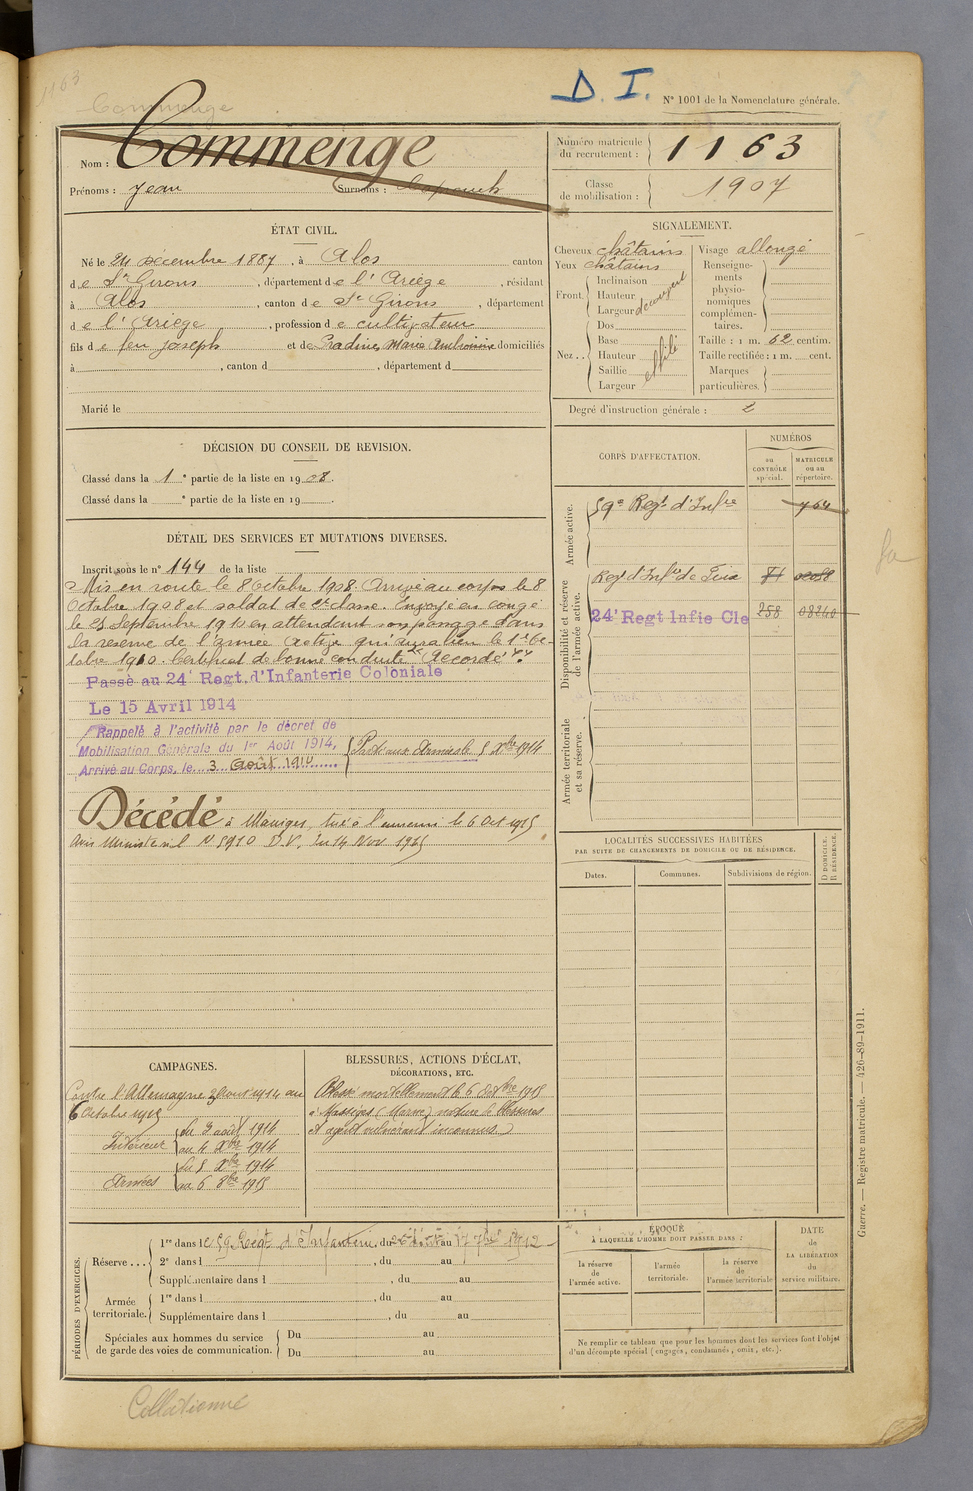 1163
Commenge
D. I.
N° 1001 de la Nomenclature générale.
Nom : Commenge
Prénoms : Jean Surnoms :
Numéro matricule du recrutement : 1163
Classe de mobilisation : 1907
ÉTAT CIVIL.
Né le 24 décembre 1887, à Alos canton
de St Girons, département de l'Ariège, résidant
à Alos, canton de St Girons, département
de l'Ariège, profession de cultivateur
fils de feu Joseph et de Pradines Marie domiciliés
à , canton d , département d
Marié le
SIGNALEMENT.
Cheveux châtains
Yeux châtains
Front.
Inclinaison
Hauteur
Largeur
découvert
Dos
Nez ..
Base
Hauteur
Saillie
Largeur
effilé
Visage allongé
Renseignements physionomiques complémentaires.
Taille : 1 m. 62 centim.
Taille rectifiée : 1 m. cent.
Marques particulières.
Degré d'instruction générale : 2
DÉCISION DU CONSEIL DE REVISION.
Classé dans la 1e partie de la liste en 1908.
Classé dans la e partie de la liste en 19 .
DÉTAIL DES SERVICES ET MUTATIONS DIVERSES.
Inscrit sous le n° 144 de la liste
Mis en route le 8 Octobre 1908. Arrivé au corps le 8
Octobre 1908 et soldat de 2e classe. Envoyé en congé
le 25 Septembre 1910 en attendant son passage dans
la réserve de l'armée active qui aura lieu le 1er Oc-
tobre 1910. Certificat de bonne conduite Accordé
Passé au 24e Regt. d'Infanterie Coloniale
Le 15 Avril 1914
Rappelé à l'activité par le décret de
Mobilisation Générale du 1er Août 1914,
Arrivé au Corps, le 3 Août 1914
Parti aux Armées le 5 Xbre 1914
Décédé à Massiges, tué à l'ennemi le 6 Oct 1915
Avis Ministériel N° 5910 D.V. du 14 Nov. 1915
CORPS D'AFFECTATION.
NUMÉROS
au CONTRÔLE spécial.
MATRICULE ou au répertoire.
Armée active.
59e Regt d'Infie 764
Disponibilité et réserve de l'armée active.
Regt d'Infie de Foix
24e Regt Infie Cle 258 08240
Armée territoriale et sa réserve.
LOCALITÉS SUCCESSIVES HABITÉES
PAR SUITE DE CHANGEMENTS DE DOMICILE OU DE RÉSIDENCE.
Dates.
Communes.
Subdivisions de région.
D DOMICILE.
R RÉSIDENCE.
CAMPAGNES.
Contre l'Allemagne 3 Août 1914 au
6 Octobre 1915
Intérieur du 3 août 1914
au 4 Xbre 1914
Armées du 5 Xbre 1914
au 6 8bre 1915
BLESSURES, ACTIONS D'ÉCLAT,
DÉCORATIONS, ETC.
Blessé mortellement le 6 Octbre 1915
à Massiges (Marne) nature de blessures
et agent vulnérant inconnus
PÉRIODES D'EXERCICES.
Réserve ...
1re dans le 59 Régt d'Infanterie, du au 17 7bre 1912
2e dans l , du au
Supplémentaire dans l , du au
Armée territoriale.
1re dans l , du au
Supplémentaire dans l , du au
Spéciales aux hommes du service de garde des voies de communication.
Du au
Du au
ÉPOQUE
À LAQUELLE L'HOMME DOIT PASSER DANS :
la réserve de l'armée active.
l'armée territoriale.
la réserve de l'armée territoriale
DATE de LA LIBÉRATION du service militaire.
Ne remplir ce tableau que pour les hommes dont les services font l'objet
d'un décompte spécial (engagés, condamnés, omis, etc.).
Guerre. — Registre matricule. — 426-89-1911.
Collationné